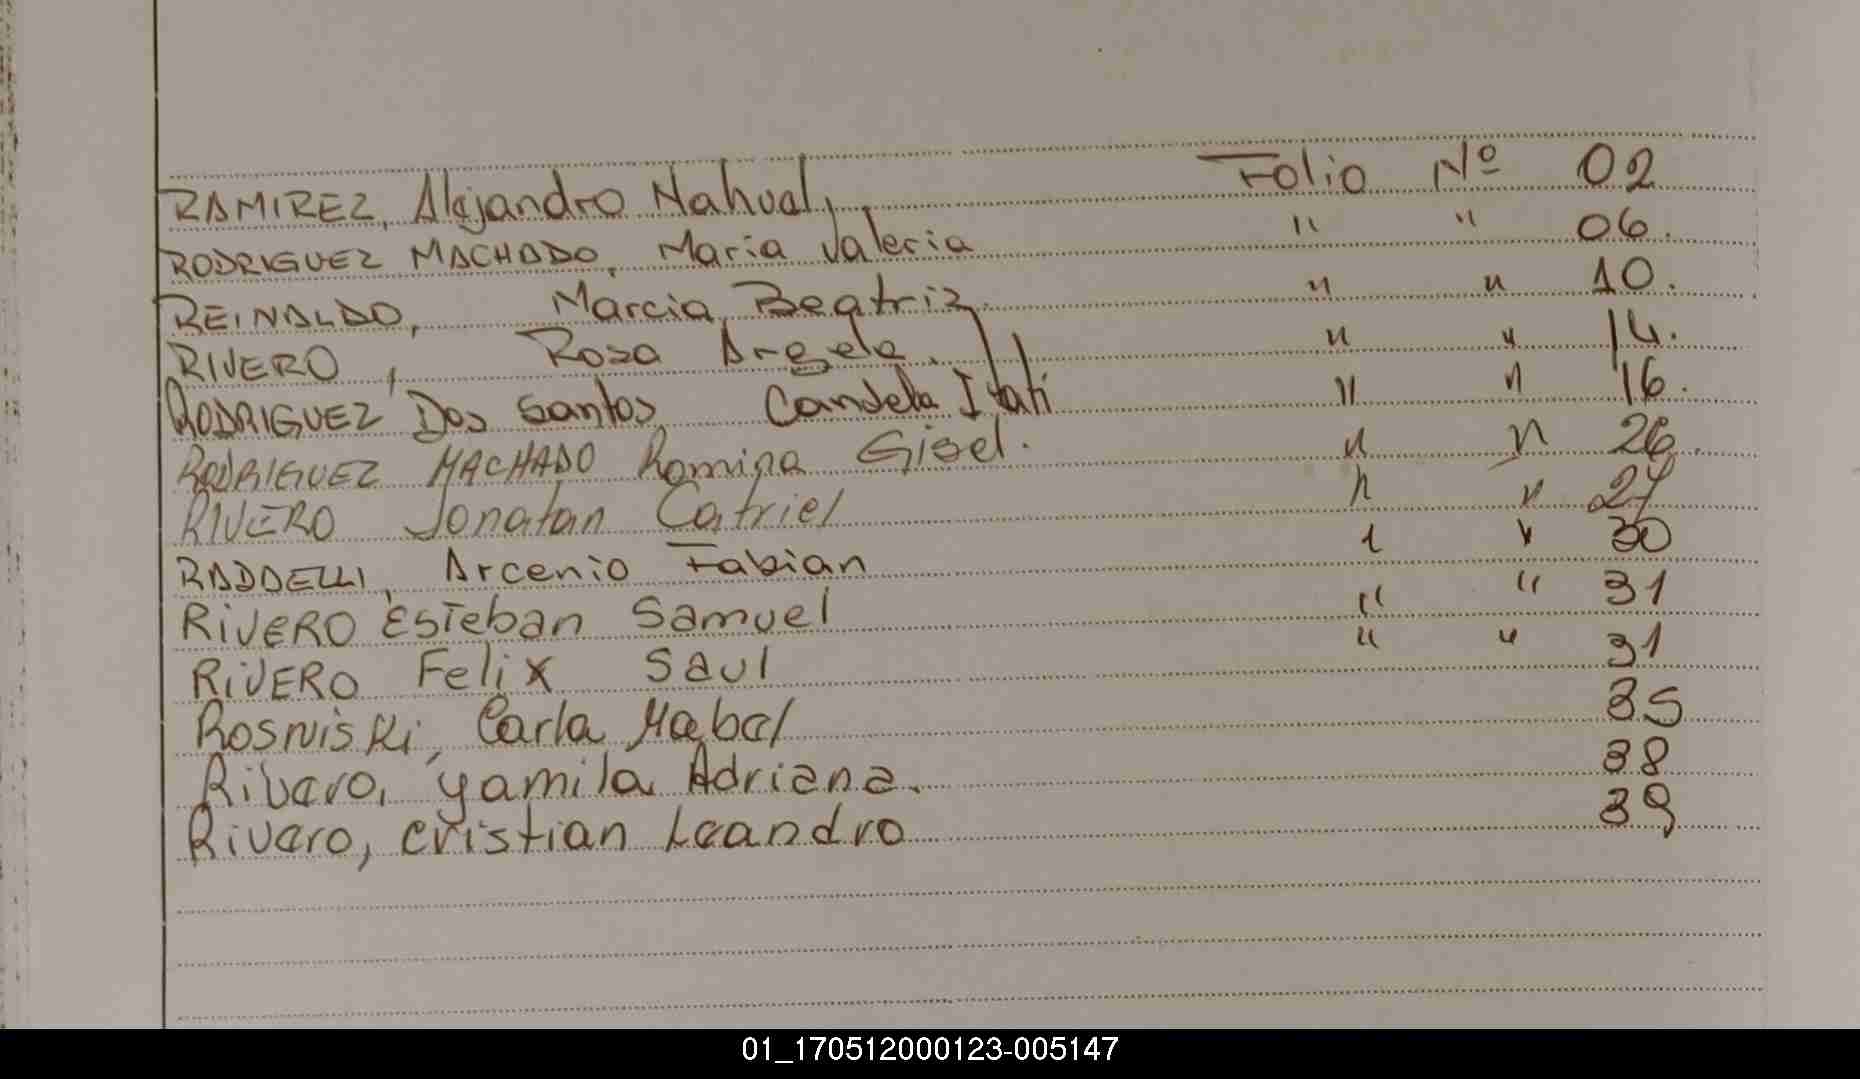 RAMIREZ, Alejandro Nahuel, Folio Nº 02
RODRIGUEZ MACHADO, Maria Valeria " " 06.
REINALDO, Marcia Beatriz. " " 10.
RIVERO, Rosa Angela. " " 14.
RODRIGUEZ Dos Santos, Candela Itati " " 16.
RODRIGUEZ MACHADO Romina Gisel. " " 26.
RIVERO Jonatan Catriel " " 27
RADDELLI, Arcenio Fabian " " 30
RIVERO Esteban Samuel " " 31
RIVERO Felix Saul " " 31
Rosniski, Carla Mabel 35
Rivero, Yamila Adriana. 38
Rivero, Cristian Leandro 39
01_170512000123-005147